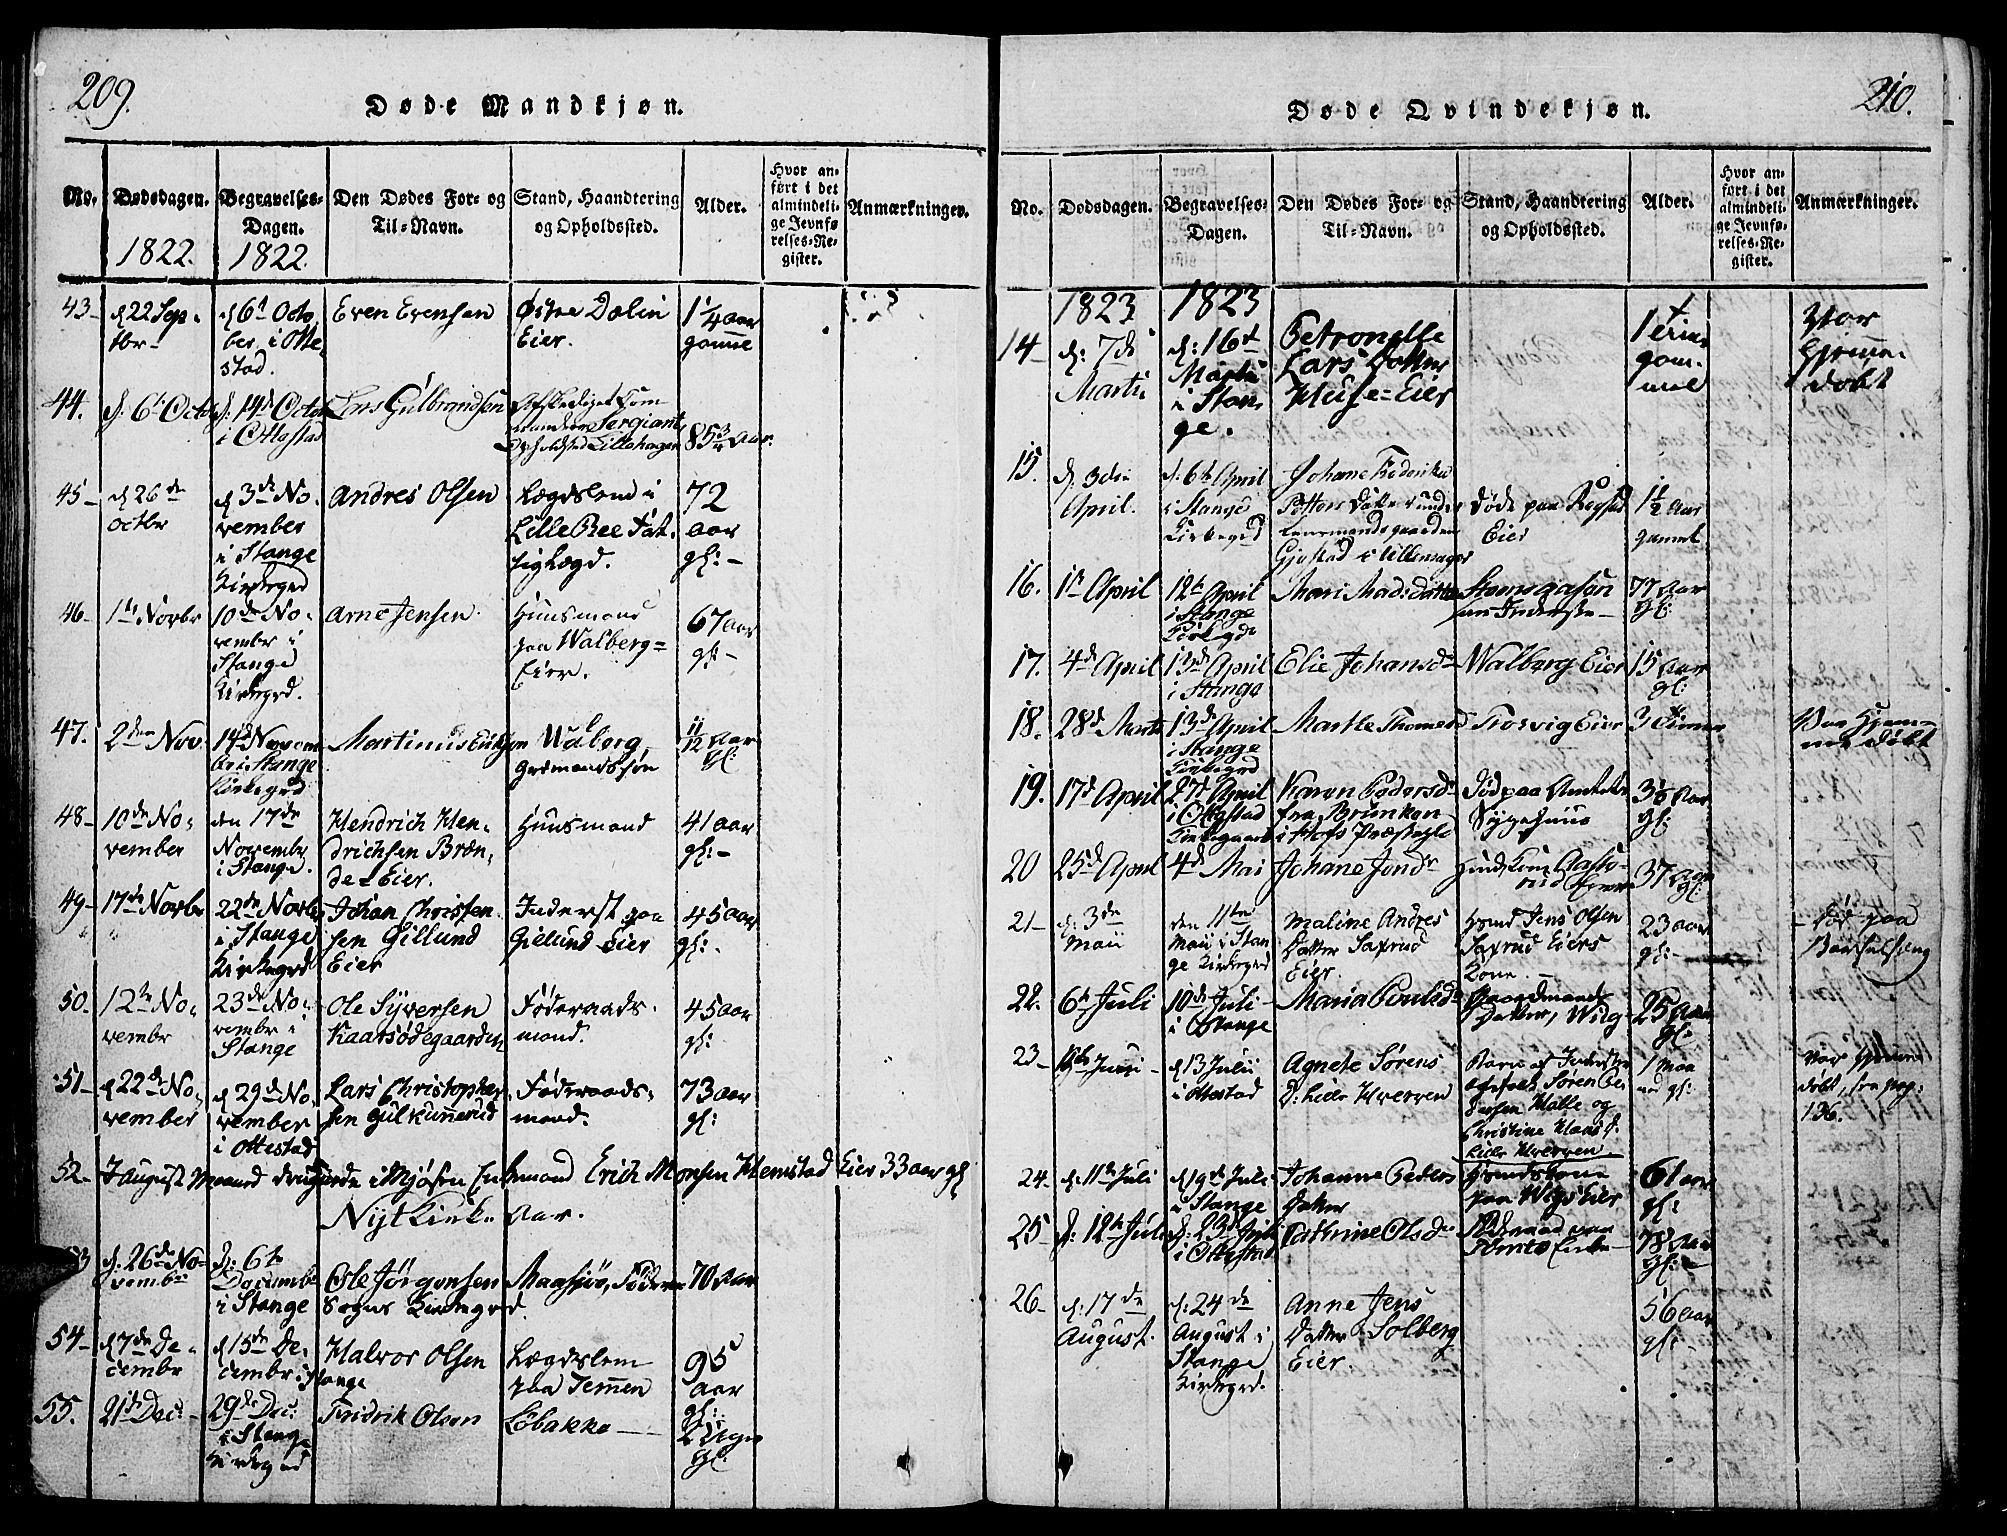 209.
Døde Mandkjøn.
No.
Dødsdagen.
1822.
Begravelses-
Dagen.
1822.
Den Dødes For- og
Til-Navn.
Stand, Haandtering
og Opholdssted.
Alder.
Hvor an-
ført i det
almindeli-
ge Jevnfø-
relses-Re-
gister.
Anmærkninger.
43-
d 22 Sep-
tbr-
d 6t Octo
ber i Otte-
stad.
Even Evensen
Østre Dælin
Eier.
1 1/4 aar
gamle
44.
d. 6t Octb
d. 14d Octbr
i Ottestad
Lars Gulbrandsen
Sergiant
Opholdsted Lillehagen
85 3/4 Aar.
45-
d 26 de
octbr
d 3de No-
vember
i Stange
Kirkegrd
Andres Olsen
Lægdslem i
Lille Ree Fat-
tiglægd.
72
aar
gl:-
46-
1te Novbr
10de No-
vembr i
Stange
Kirkegrd.
Arne Jensen.
Huusmand
paa Walberg-
Eier.
67 aar
gl-
47.
2den Nov.
14de Novem
ber i Stange
Kirkegrd
Martinus Eriksen
Walberg,
Grdmandssøn
11/12 Aar
gl:
48-
10de No-
vember
den 17de
Novembr
i Stange.
Hendrich Hen-
drichsen Bræn-
de-Eier.
Huusmand
41 aar
gl:-
49-
17de Novbr
22de Novbr
i Stange
Kirkegrd
Johan Christen-
sen Gillund
Eier
Inderst paa
Gielund Eier
45 aar
gl:-
50-
12te No-
vembr
23de No-
vembr i
Stange
Ole Syversen
Kaarsødegaarden
Føderaads-
mand.
45 aar
gl:
51-
d 22de No-
vember
d 29de No-
vember
i Ottestad
Lars Christopher-
sen Gilkunnerud
Føderaads-
mand.
73 aar
gl:
52-
I August Maaned druknede i Mjøsen Enkemand Erich Monsen Hemstad Eier 33 aar gl
Nyt Kirke-Aar.
53
d. 26de No-
vembr
d: 6te
Decembr
i Stange
Ole Jørgensen
Sogns Kirkegrd.
Maasjøe, Føderm
70 Aar
54-
d 7de De-
cembr
d 15de De-
cembr i Stange
Halvor Olsen
Lægdslem
paa Temen
95
aar
gl:
55.
21de Dec:
29de Dec:
i Stange
Kirkegrd
Fridrik Olsen
Løbakke
2 Uger
gl:
210.
Døde Qvindekjøn.
No.
Dødsdagen.
Begravelses-
Dagen.
Den Dødes For- og
Til-Navn.
Stand, Haandtering
og Opholdssted.
Alder.
Hvor an-
ført i det
almindeli-
ge Jevnfø-
relses-Re-
gister.
Anmærkninger.
1823
1823
14-
d: 7de
Martii
d: 16t
Martii
i Stan-
ge.
Petronelle
Lars Datter
Huse-Eier
1
gam-
mel
Var
hjemme-
døbt
15.
d: 3die
April.
d. 6te April
i Stange
Kirkegrd
Johane Frederike
Datter under
Lensmandsgaarden
Gjestad i Ullensager
døde paa Rogstad
Eier
1 1/2 Aar
gammel
16.
1te April
12te April
i Stange
Kirkegrd
Mari Madsdatter
Inderste-
77 Aar
gl:
17.
4de April
13de April
i Stange
Elie Johansd.
Walberg Eier
15 Aar
gl:
18.
28d Marts
13de April
i Stange
Kirkegrd
Marthe Thomesd
Torsvig Eier
3 Timer
Var Hjem-
me døbt
19.
17d April
27de April
i Ottestad
Kirkegaard
Karen Pedersd.
fra Brunken
i Hofs Præstegld
død paa Amtets
Sygehuus
gl:
20
25de April
4de Mai
Johane Jonsdr
37 Aar
gl:
21-
d: 3de
Maii
den 11te
Maii i Stan
ge Kirkegrd
Maline Andres
Datter Saxrud
Eier.
Hsmd Jens Olsen
Saxrud Eiers
Kone.-
23 aar
gl:-
- død paa
Barselseng
22.
6te Juli
10de Juli
i Stange
Maria Poulsd.
Gaardmands
Datter, Wiig
25 Aar
gl:
23-
d 13 Julii
i Ottestad
Agnete Sørens
D. Lille Hverven
Barn af Inderste
Søren Pe-
dersen Halle og
Christine Hans D.
Lille Hverven
1 Maa
ned gl:
var hjemme
døbt, see pag:
136.
24.
d: 11te Juli
d 19de Juli
i Stange
Johanne Peders
Datter
Huusmkone
paa Wigs Eier
61 aar
gl:
25-
d: 12te Juli
d: 23de Juli
i Ottestad
Cathrine Olsd.
78 Aar
gl:
26-
d: 17de
August.
d: 24de
August i
Stange
Kirkegrd.
Anne Jens
Datter Solberg
Eier.
56 aar
gl: